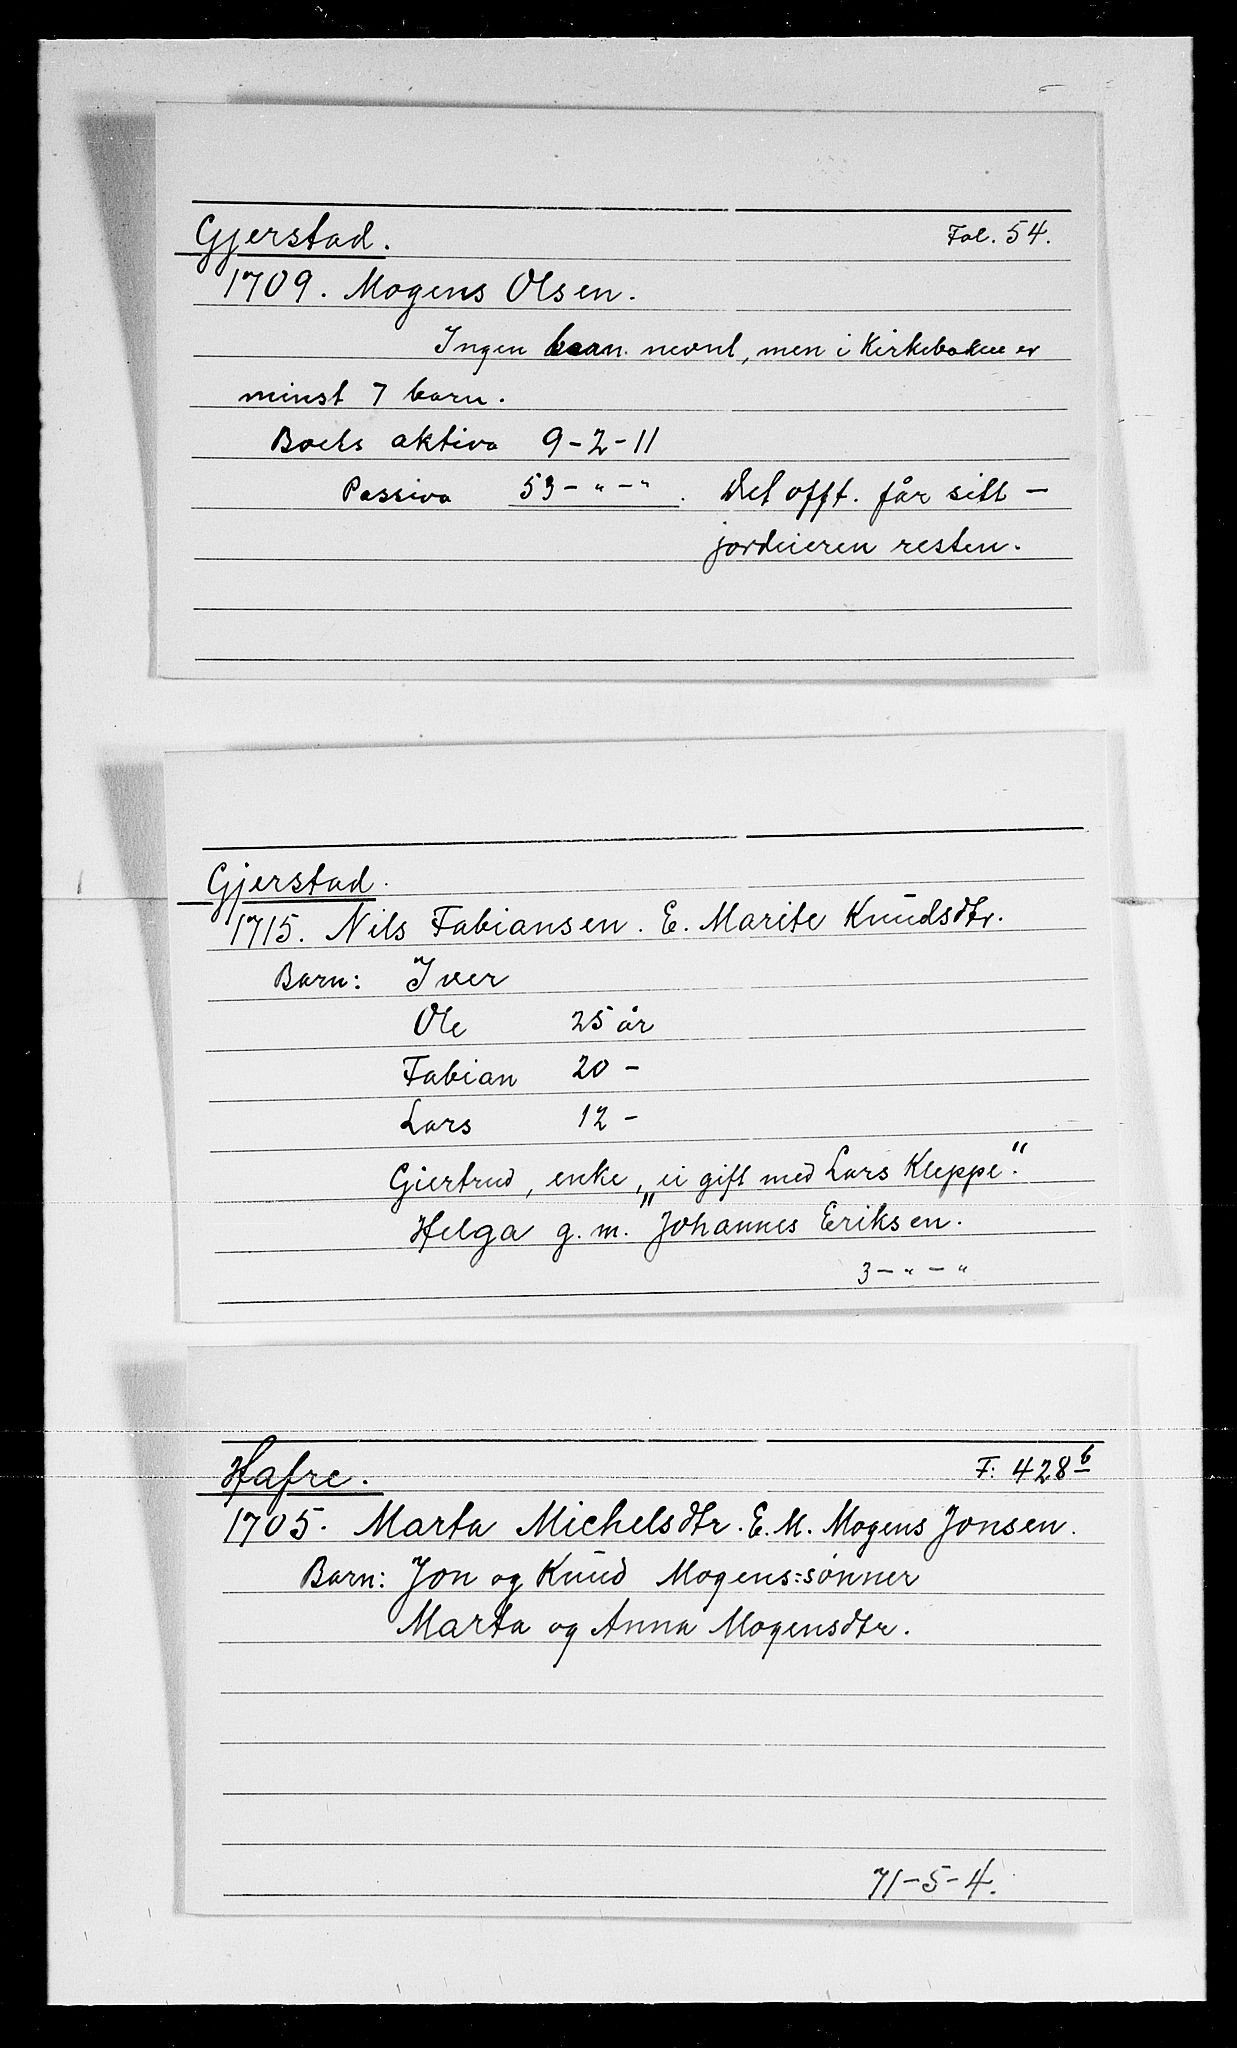 Gjerstad. Fol. 54.
1709. Mogens Olsen.
Ingen barn nevnt, men i Kirkeboken er
minst 7 barn.
Boets aktiva 9-2-11
Passiva 53-"-". Det offt. får sitt -
jordeieren resten.
Gjerstad.
1715. Nils Fabiansen. E. Marite Knudsdtr.
Barn: Iver
Ole 25 år
Fabian 20 -
Lars 12 -
Giertrud, enke, „ei gift med Lars Kleppe".
Helga g. m. Johannes Eriksen.
3-"-"
Hafre. F: 428b
1705. Marta Michelsdtr. E. M. Mogens Jonsen.
Barn: Jon og Knud Mogens=sønner
Marta og Anna Mogensdtr.
71-5-4.